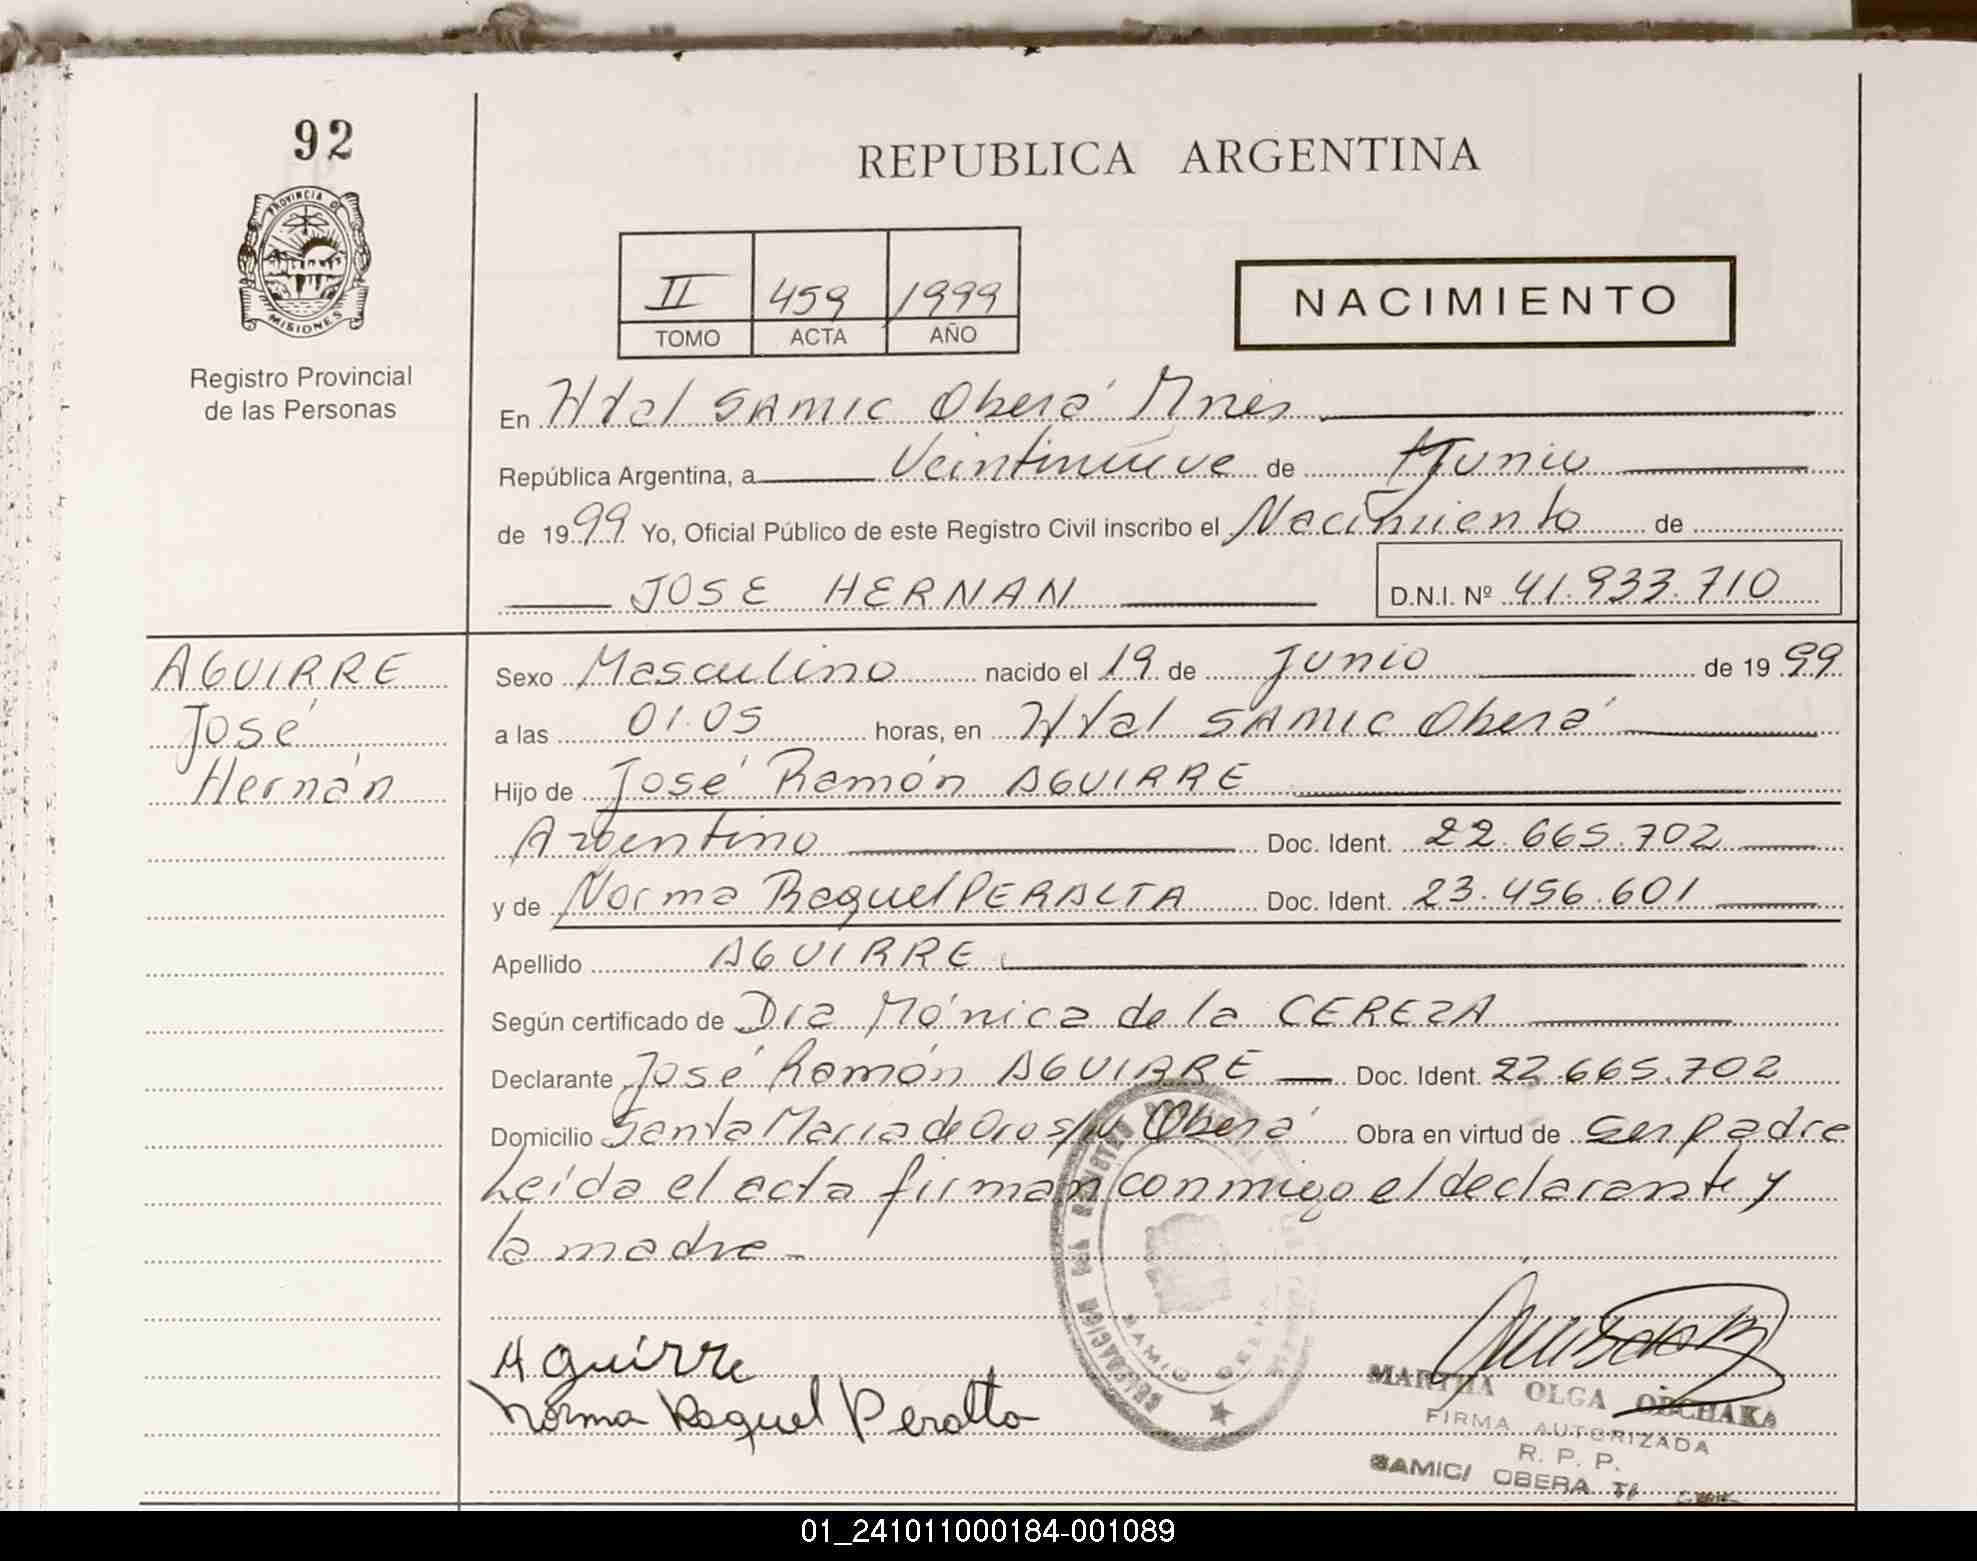 92
REPUBLICA ARGENTINA
PROVINCIA D
MISIONES
Registro Provincial
de las Personas
II 459 1999
TOMO ACTA AÑO
NACIMIENTO
En Htal SAMIC Oberá Mnes
República Argentina, a Veintinueve de Junio
de 1999 Yo, Oficial Público de este Registro Civil inscribo el Nacimiento de
JOSE HERNAN D.N.I. Nº 41.933.710
AGUIRRE
José
Hernán
Sexo Masculino nacido el 19 de Junio de 1999
a las 01.05 horas, en Htal SAMIC Oberá
Hijo de José Ramón AGUIRRE
Argentino Doc. Ident. 22.665.702
y de Norma Raquel PERALTA Doc. Ident. 23.456.601
Apellido AGUIRRE
Según certificado de Dra Mónica de la CEREZA
Declarante José Ramón AGUIRRE Doc. Ident. 22.665.702
Domicilio Santa Maria de Oro s/n Oberá Obra en virtud de ser padre
Leída el acta firman conmigo el declarante y
la madre
Aguirre
Norma Raquel Peralta
MARTHA OLGA OBCHAKA
FIRMA AUTORIZADA
R. P. P.
SAMIC/ OBERA
01_241011000184-001089